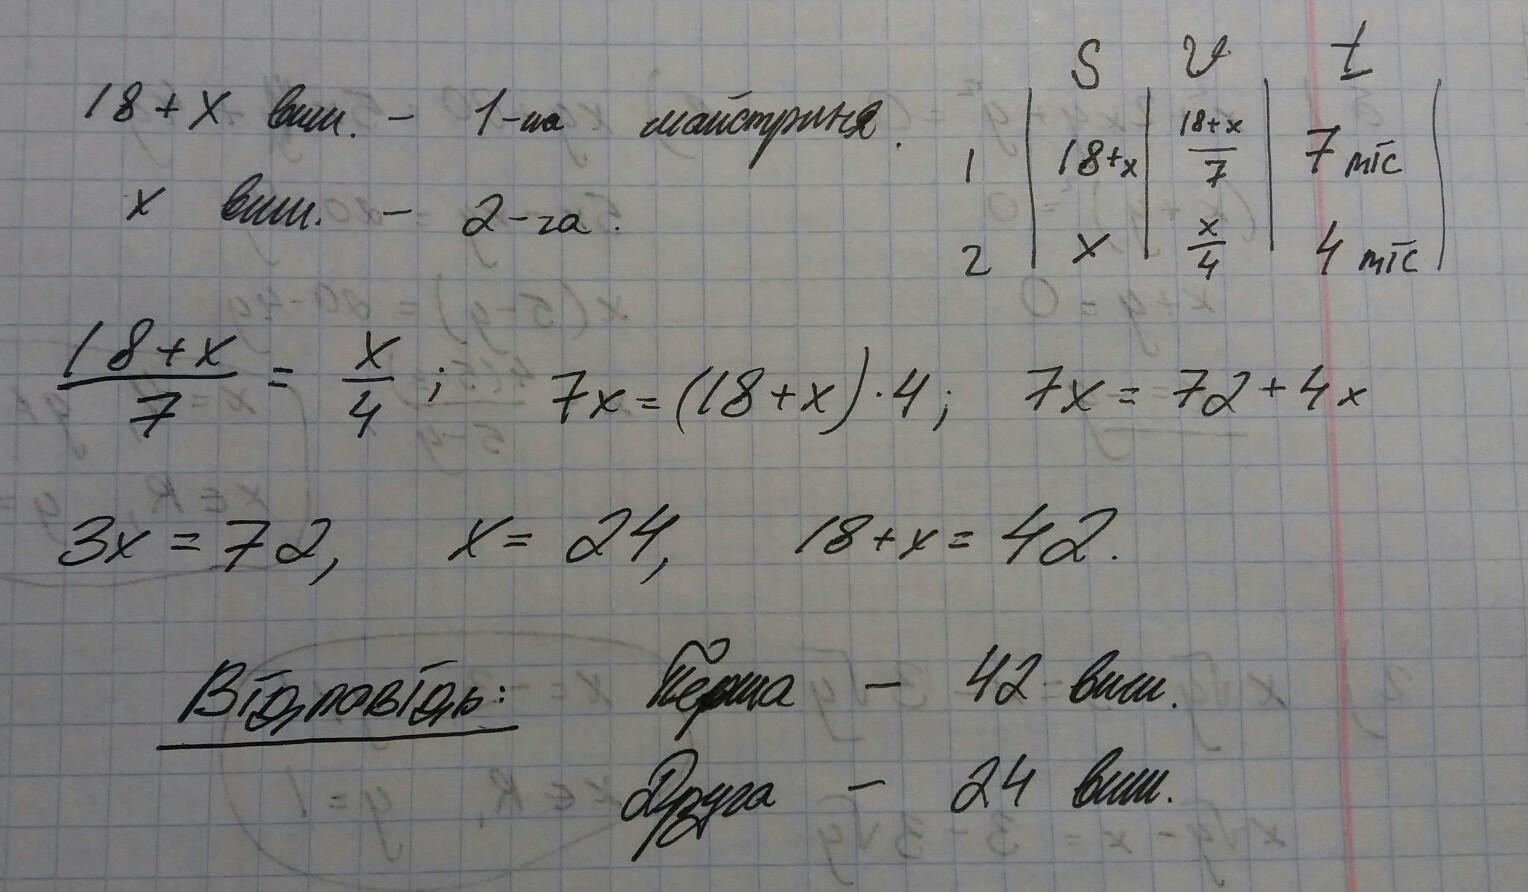 18+x виш. - 1-ша майстриня.
x виш. - 2-га.
S v t
1 | 18+x | 18+x/7 | 7 міс |
2 | x | x/4 | 4 міс |
18+x/7 = x/4; 7x=(18+x)·4; 7x=72+4x
3x=72, x=24, 18+x=42.
Відповідь: Перша - 42 виш.
Друга - 24 виш.